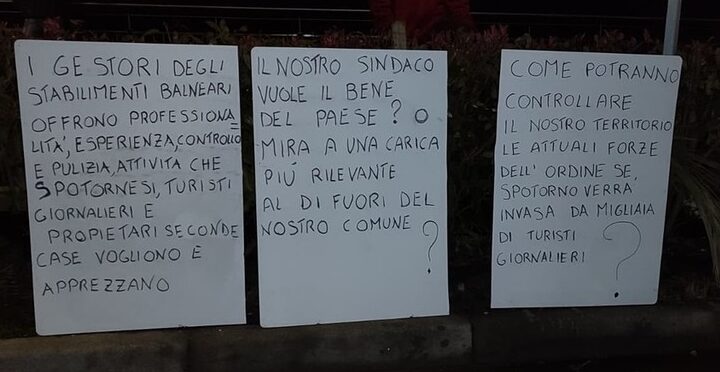 I GESTORI DEGLI
STABILIMENTI BALNEARI
OFFRONO PROFESSIONA
LITA', ESPERIENZA, CONTROLLO
E PULIZIA, ATTIVITA CHE
SPOTORNESI, TURISTI
GIORNALIERI E
PROPIETARI SECONDE
CASE VOGLIONO E
APPREZZANO
IL NOSTRO SINDACO
VUOLE IL BENE
DEL PAESE? O
MIRA A UNA CARICA
PIÚ RILEVANTE
AL DI FUORI DEL
NOSTRO COMUNE?
COME POTRANNO
CONTROLLARE
IL NOSTRO TERRITORIO
LE ATTUALI FORZE
DELL'ORDINE SE,
SPOTORNO VERRÀ
INVASA DA MIGLIAIA
DI TURISTI
GIORNALIERI?